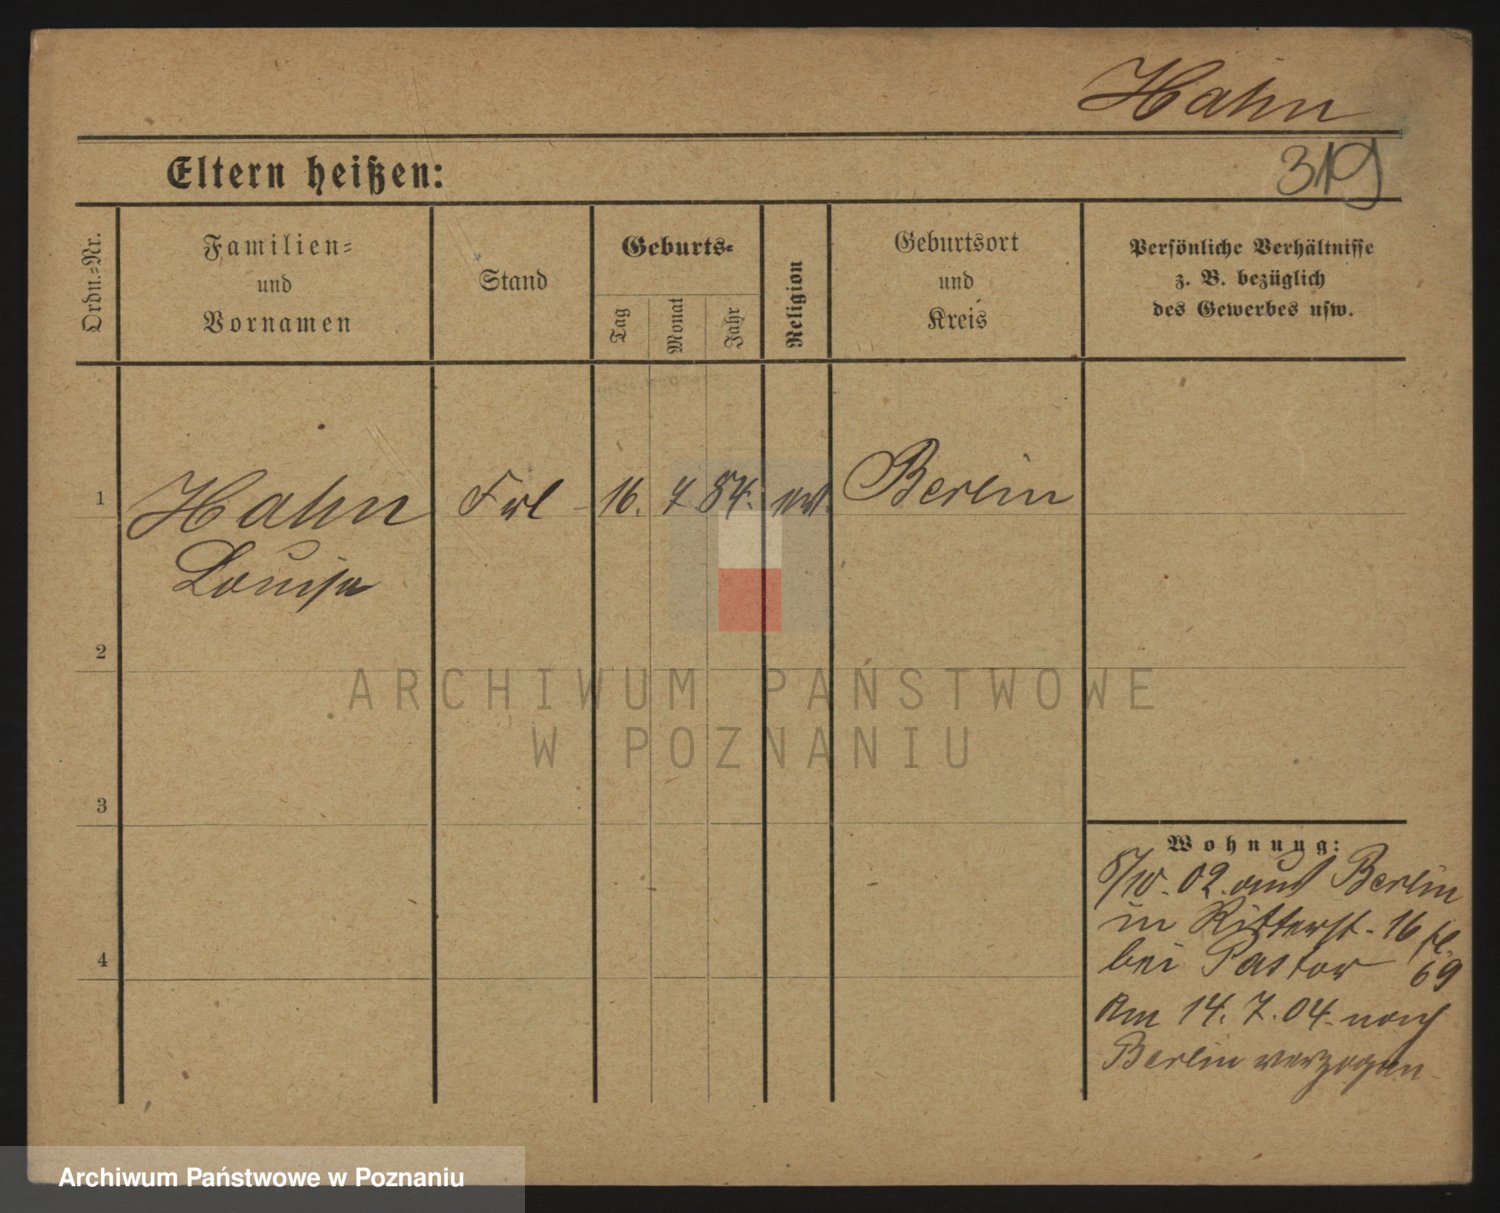 Hahn
319
Eltern heißen:
Ordn.=Nr.
Familien=
und
Vornamen
Stand
Geburts=
Tag
Monat
Jahr
Religion
Geburtsort
und
Kreis
Persönliche Verhältnisse
z. B. bezüglich
des Gewerbes usw.
1
Hahn
Louise
Frl
16.
7
84.
ev.
Berlin
2
3
4
Wohnung:
8/10. 02. aus Berlin
in Ritterst. 16
bei Pastor 69
Am 14. 7. 04. nach
Berlin verzogen
ARCHIWUM PAŃSTWOWE
W POZNANIU
Archiwum Państwowe w Poznaniu